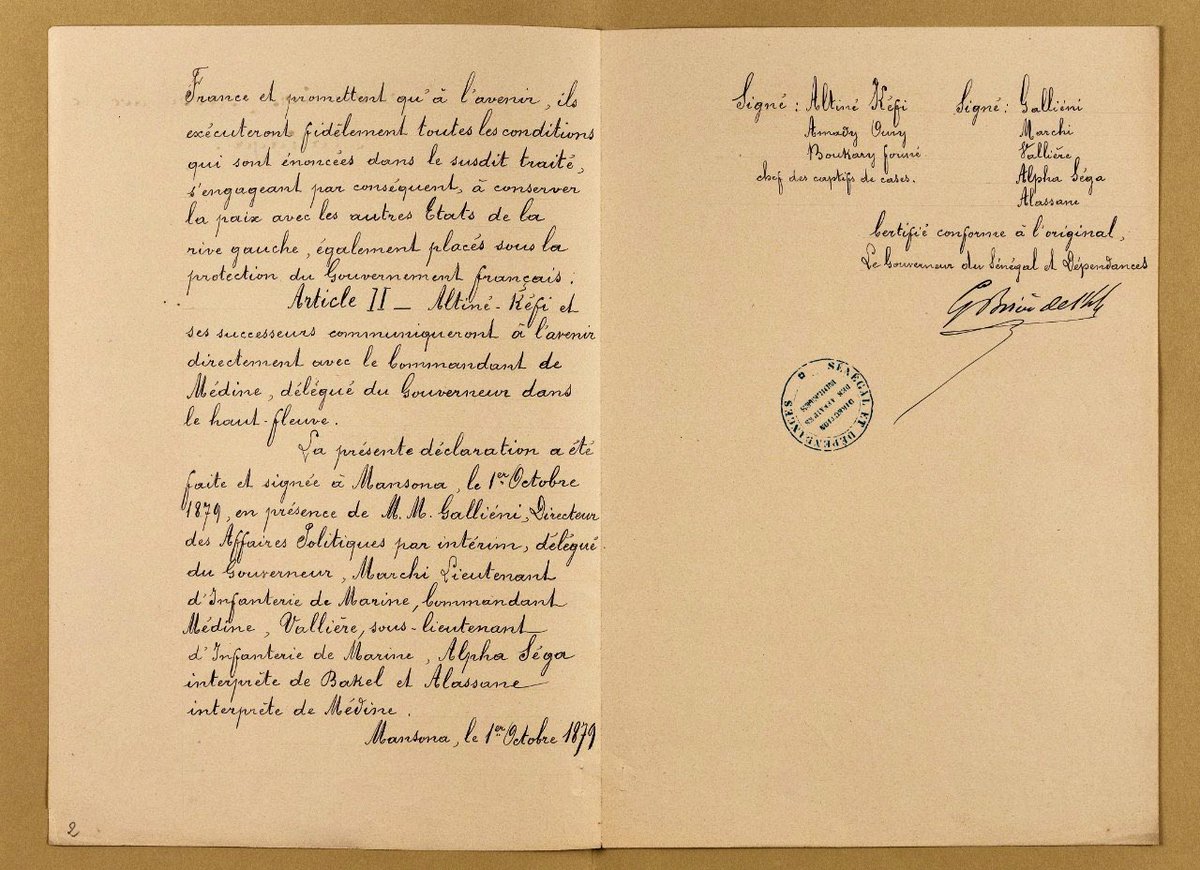 France et promettent qu'à l'avenir, ils
exécuteront fidèlement toutes les conditions
qui sont énoncées dans le susdit traité,
s'engageant par conséquent, à conserver
la paix avec les autres Etats de la
rive gauche, également placés sous la
protection du Gouvernement français.
Article II — Altiné-Kéfi et
ses successeurs communiqueront à l'avenir
directement avec le Commandant de
Médine, délégué du Gouverneur dans
le haut-fleuve.
La présente déclaration a été
faite et signée à Mansona, le 1er Octobre
1879, en présence de M.M. Galliéni, Directeur
des Affaires Politiques par intérim, délégué
du Gouverneur, Marchi Lieutenant
d'Infanterie de Marine, Commandant
Médine, Vallière, sous-lieutenant
d'Infanterie de Marine, Alpha Séga
interprète de Bakel et Alassane
interprète de Médine.
Mansona, le 1er Octobre 1879
2
Signé: Altiné Kéfi
Amady Oury
Boukary
chef des captifs de cases.
Signé: Galliéni
Marchi
Vallière
Alpha Séga
Alassane
Certifié conforme à l'original,
Le Gouverneur du Sénégal et Dépendances
G Brière de l'Isle
SÉNÉGAL ET DÉPENDANCES
DIRECTION
DES AFFAIRES
POLITIQUES